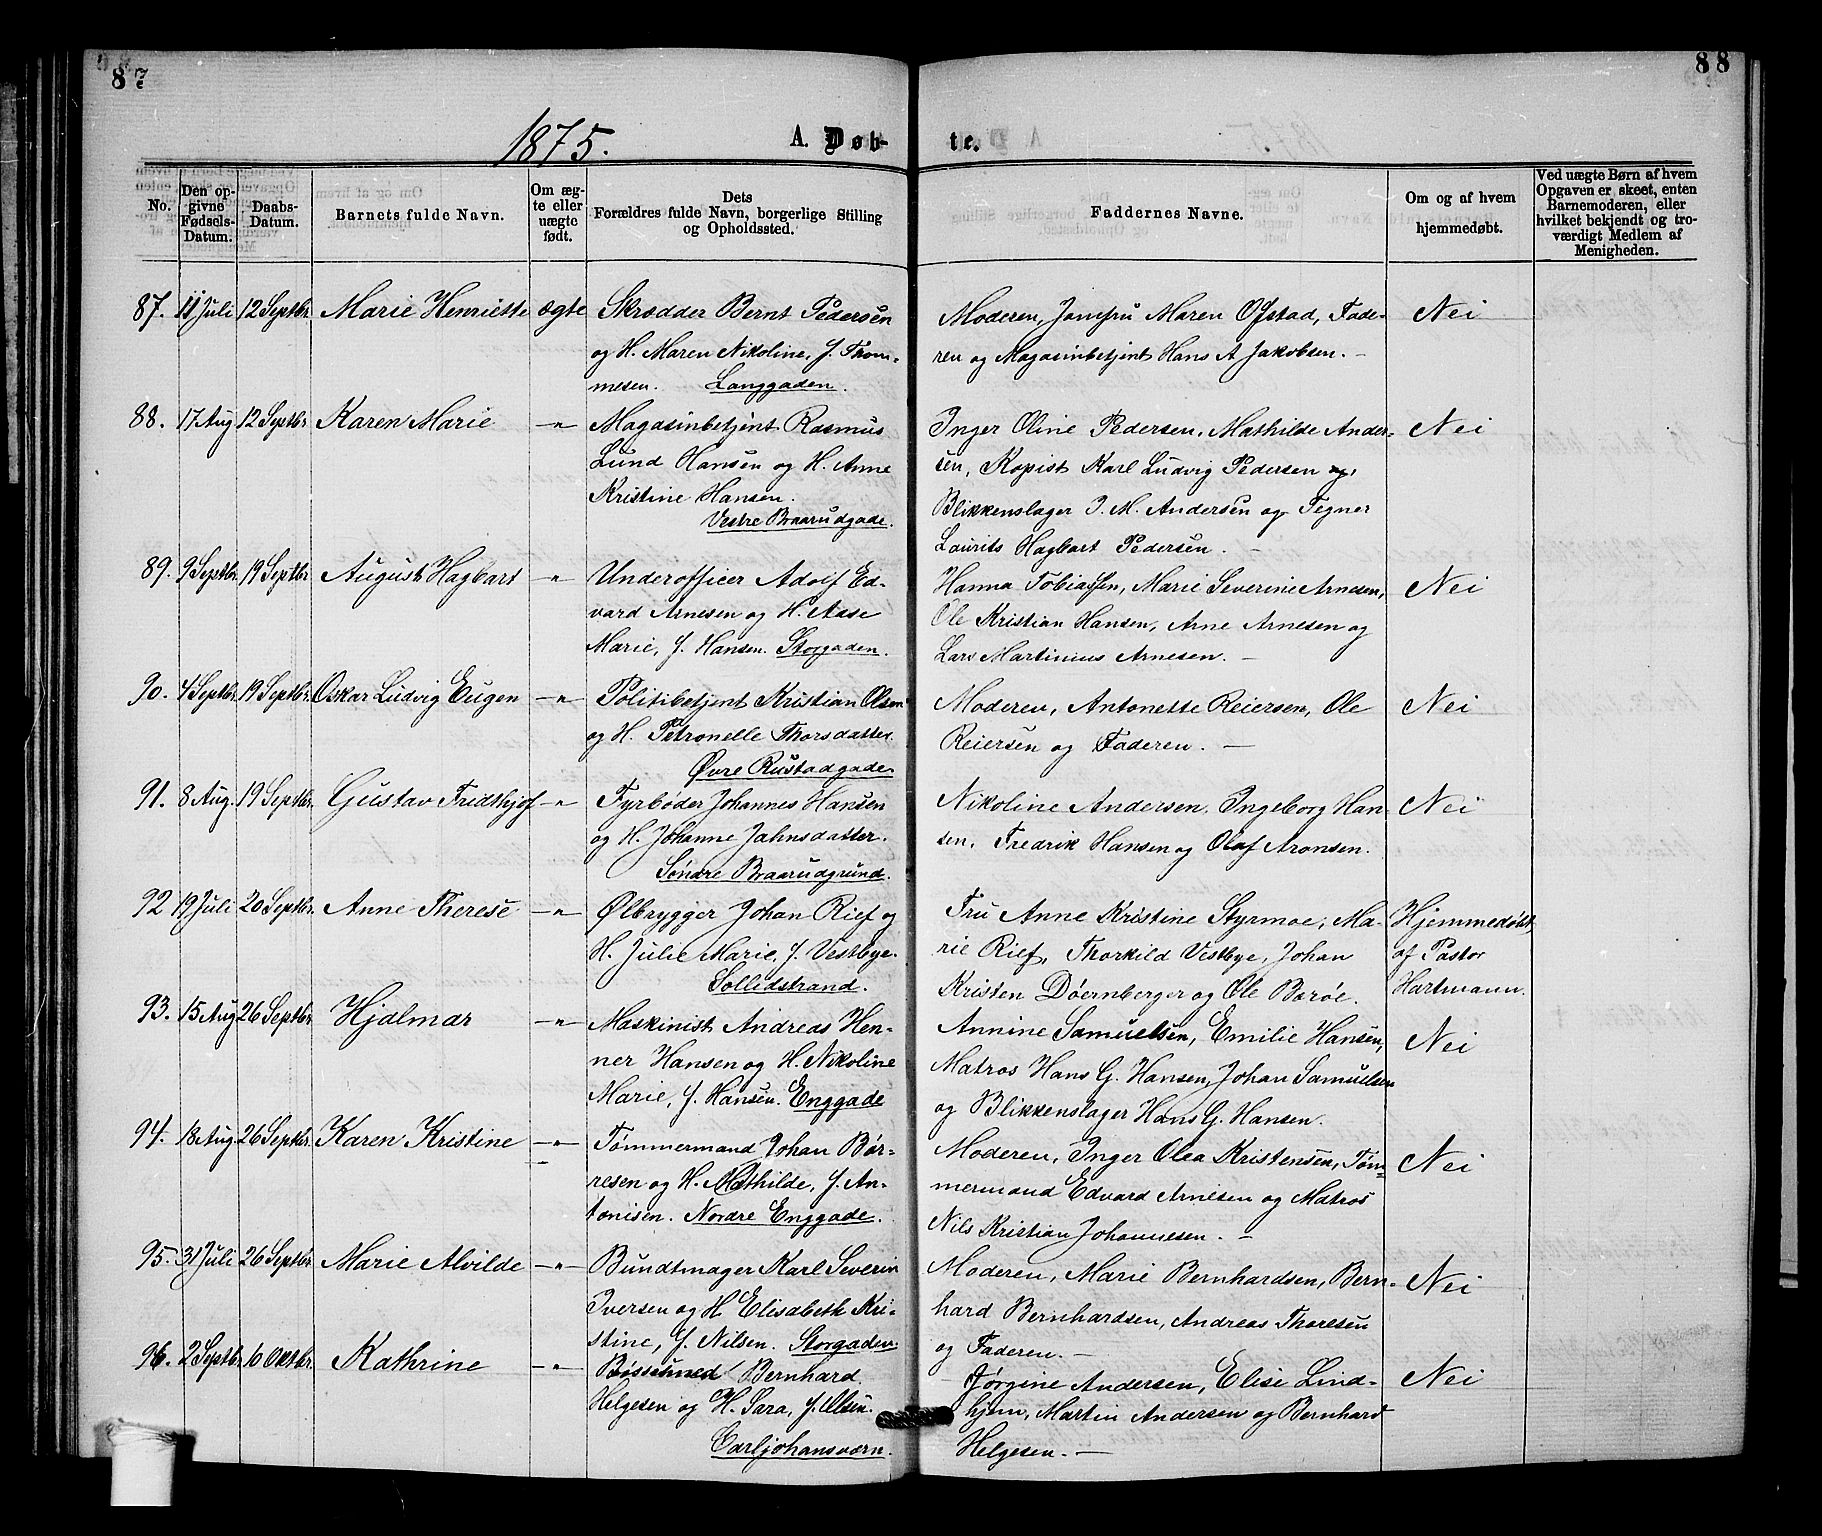 87
88
1875.
A. Døb-
te.
No.
Den op-
givne
Fødsels-
Datum.
Daabs-
Datum.
Barnets fulde Navn.
Om æg-
te eller
uægte
født.
Dets
Forældres fulde Navn, borgerlige Stilling
og Opholdssted.
Faddernes Navne.
Om og af hvem
hjemmedøbt.
Ved uægte Børn af hvem
Opgaven er skeet, enten
Barnemoderen, eller
hvilket bekjendt og tro-
værdigt Medlem af
Menigheden.
87. 11 Juli 12 Septbr. Marie Henriette ægte Skrædder Bernt Pedersen
og H. Maren Nikoline, f. Thom-
mesen. Langgaden.
Moderen, Jomfru Maren Ofstad, Fade-
ren og Magasinbetjent Hans A Jakobsen. —
Nei
88. 17 Aug 12 Septbr. Karen Marie —"— Magasinbetjent Rasmus
Lund Hansen og H. Anne
Kristine Hansen.
Vestre Braarudgade.
Inger Oline Pedersen, Mathilde Ander-
sen, Kopist Karl Ludvig Pedersen
Blikkenslager J. M. Andersen og Tegner
Laurits Hagbart Pedersen. —
Nei
89. 9 Septbr. 19 Septbr. August Hagbart —"— Underofficer Adolf Ed-
vard Arnesen og H. Aase
Marie, f. Hansen. Storgaden.
Hanna Tobiassen, Marie Severine Arnesen,
Ole Kristian Hansen, Arne Arnesen og
Lars Martinius Arnesen. —
Nei
90. 4 Septbr. 19 Septbr. Oskar Ludvig Eugen —"— Politibetjent Kristian Olsen
og H. Petronelle Thorsdatter.
Øvre Rustadgade.
Moderen, Antonette Reiersen, Ole
Reiersen og Faderen. —
Nei
91. 8 Aug. 19 Septbr. Gustav Fridthjof —"— Fyrbøder Johannes Hansen
og H. Johanne Jahnsdatter.
Søndre Braarudgrund.
Nikoline Andersen, Ingeborg Han-
sen, Fredrik Hansen og Olaf Aronsen.
Nei
92 19 Juli 20 Septbr. Anne Therese —"— Ølbrygger Johan Rief og
H. Julie Marie, f. Vestbye.
Sollidstrand.
Fru Anne Kristine Styrmoe, Ma-
rie Rief, Thorkild Vestbye, Johan
Kristen Döernberger og Ole Barøe.
Hjemmedøbt
af Pastor
Hartmann.
93. 15 Aug 26 Septbr. Hjalmar —"— Maskinist Andreas Hen-
ner Hansen og H. Nikoline
Marie, f. Hansen. Enggade
Annine Samuelsen, Emilie Hansen,
Matros Hans G. Hansen, Johan Samuelsen
og Blikkenslager Hans G. Hansen.
Nei
94. 18 Aug. 26 Septbr. Karen Kristine —"— Tømmermand Johan Bør-
resen og H. Mathilde, f. An-
tonisen. Nordre Enggade.
Moderen, Inger Olea Kristensen, Tøm-
mermand Edvard Arnesen og Matros
Nils Kristian Johannesen. —
Nei
95. 31 Juli 26 Septbr. Marie Alvilde —"— Bundtmager Karl Severin
Iversen og H. Elisabeth Kri-
stine, f. Nilsen. Storgaden.
Moderen, Marie Bernhardsen, Bern-
hard Bernhardsen, Andreas Thoresen
og Faderen. —
Nei
96. 2 Septbr. 10 Oktbr. Kathrine —"— Bøssesmed Bernhard
Helgesen og H. Sara, f. Olsen.
Carljohansværn.
Jørgine Andersen, Elise Lind-
hjem, Martin Andersen og Bernhard
Helgesen. —
Nei